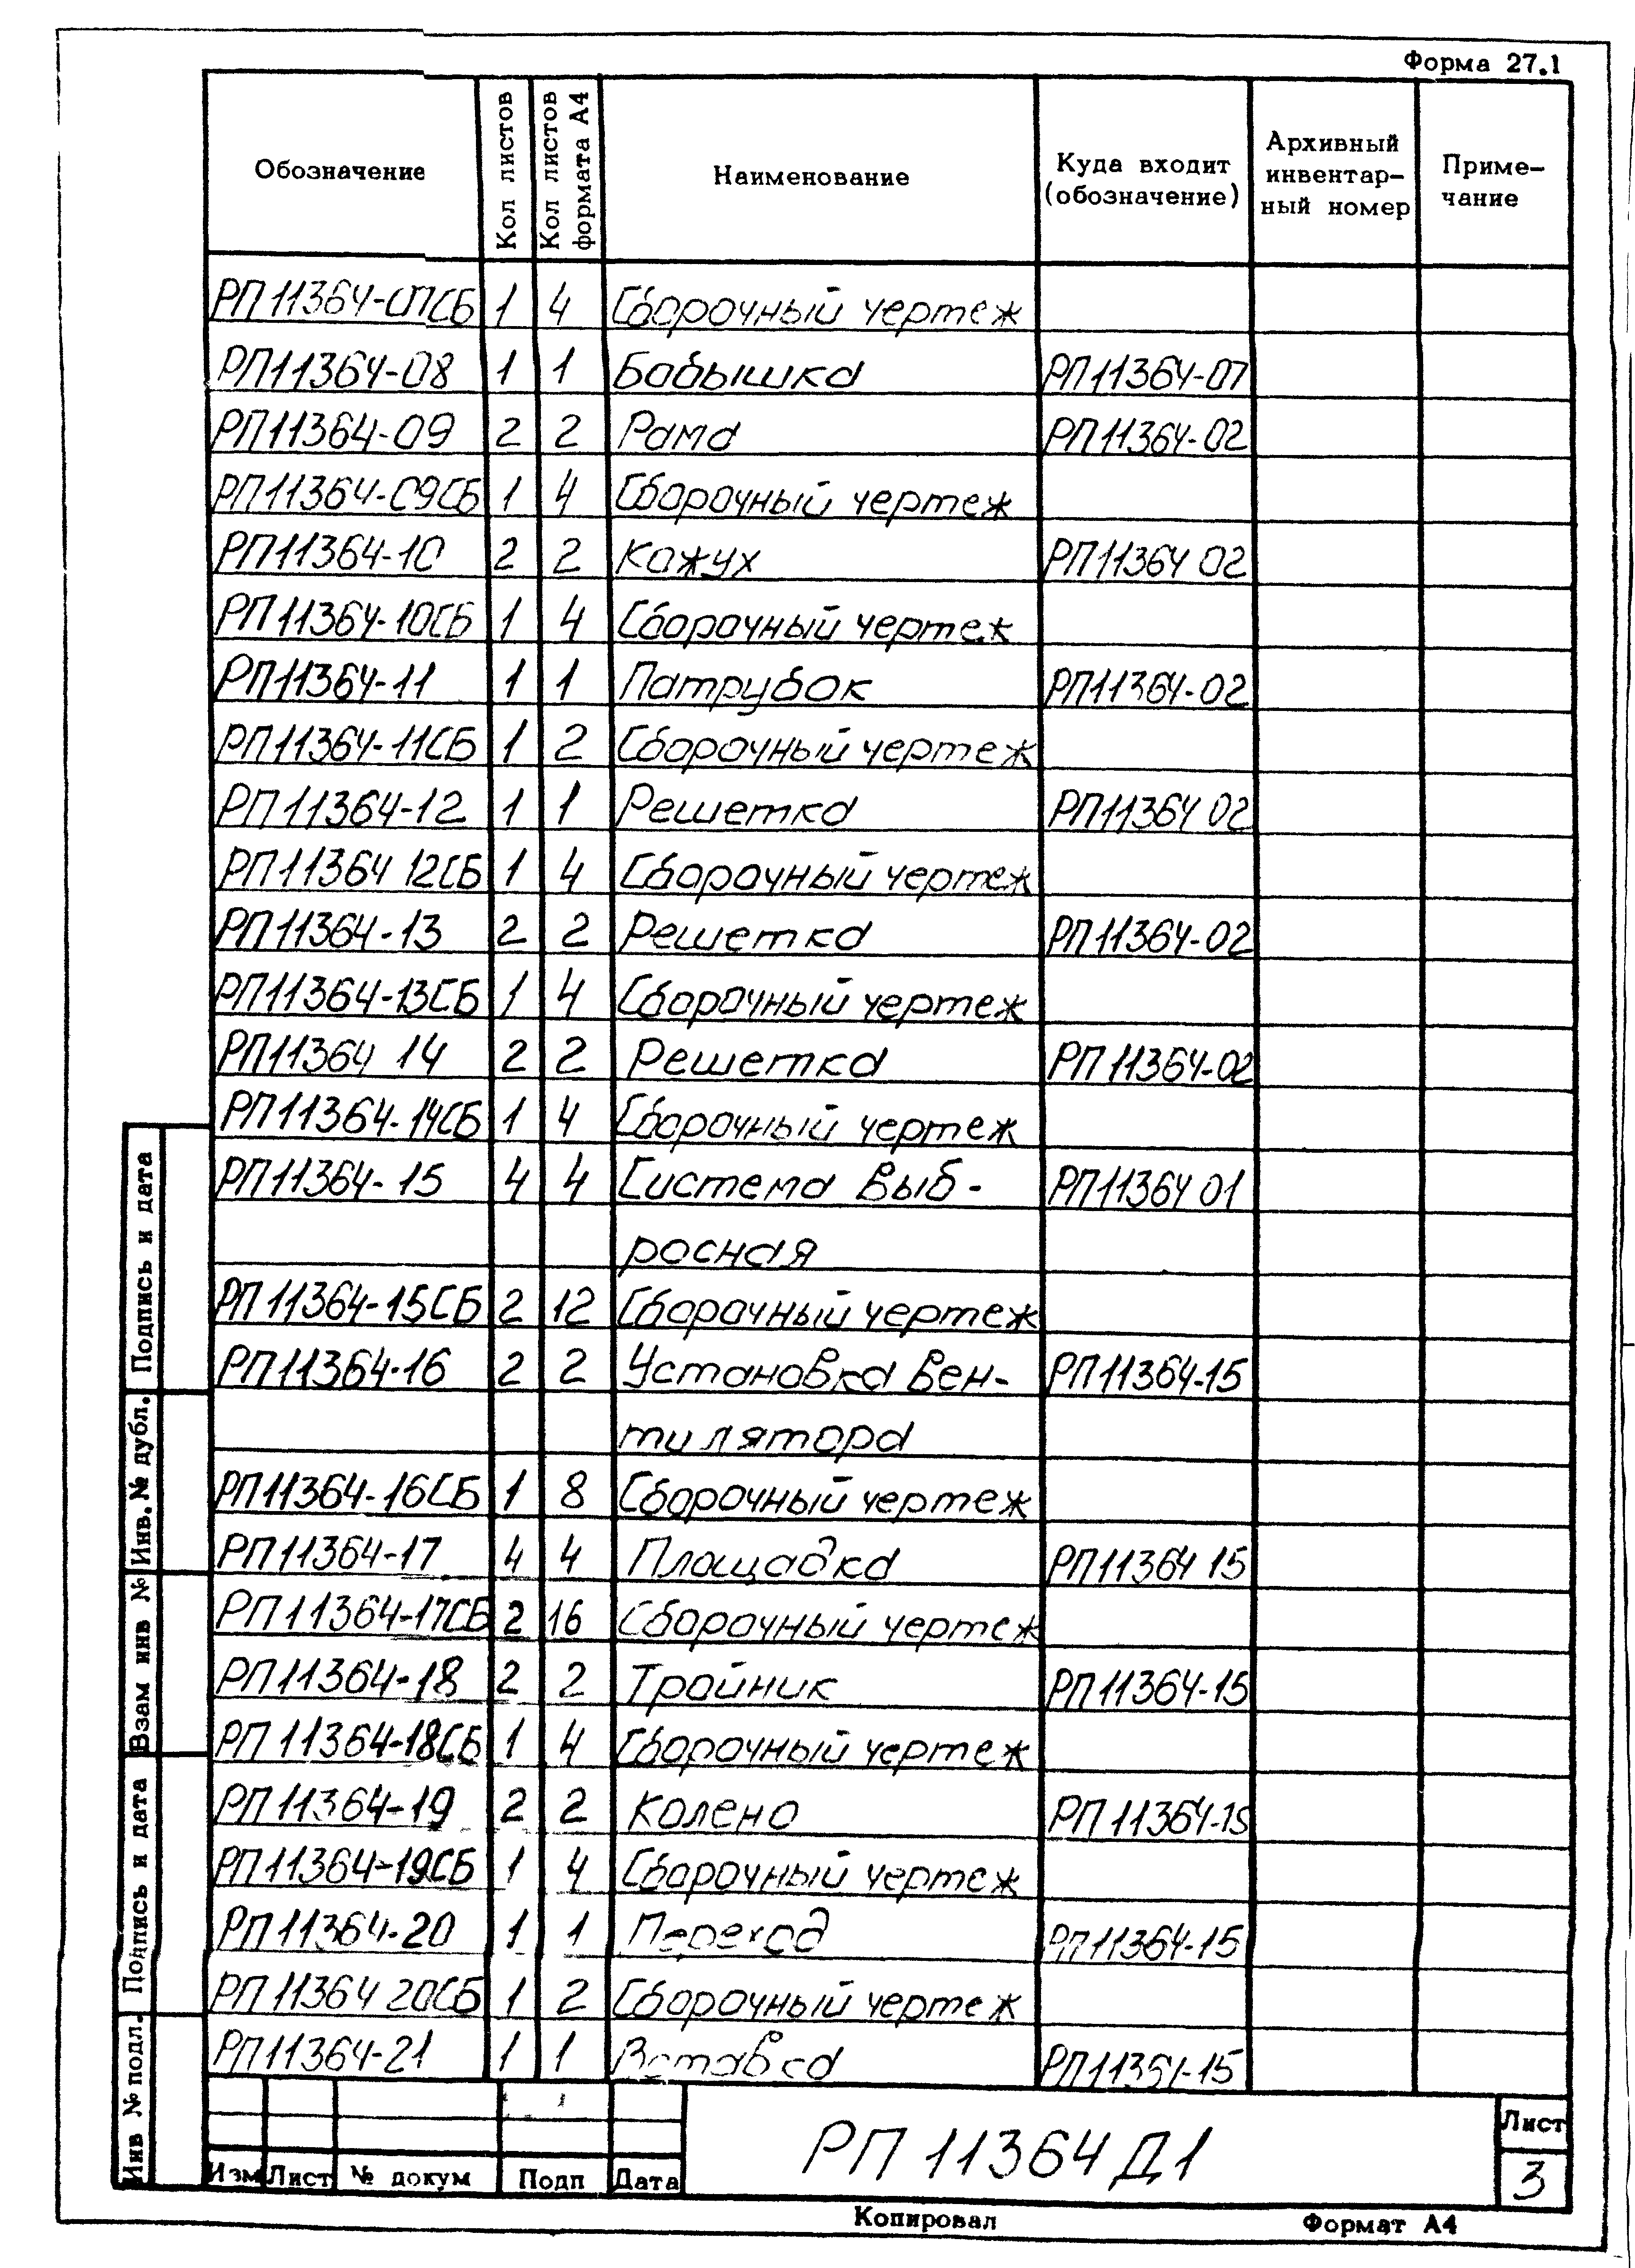 Форма 27.1
Обозначение
Кол листов
Кол листов формата А4
Наименование
Куда входит (обозначение)
Архивный инвентар- ный номер
Приме- чание
РП11364-07СБ 1 4 Сборочный чертеж
РП11364-08 1 1 Бобышка РП11364-07
РП11364-09 2 2 Рама РП11364-02
РП11364-09СБ 1 4 Сборочный чертеж
РП11364-10 2 2 Кожух РП11364 02
РП11364-10СБ 1 4 Сборочный чертеж
РП11364-11 1 1 Патрубок РП11364-02
РП11364-11СБ 1 2 Сборочный чертеж
РП11364-12 1 1 Решетка РП11364 02
РП11364 12СБ 1 4 Сборочный чертеж
РП11364-13 2 2 Решетка РП11364-02
РП11364-13СБ 1 4 Сборочный чертеж
РП11364 14 2 2 Решетка РП11364-02
РП11364-14СБ 1 4 Сборочный чертеж
РП11364-15 4 4 Система выб- РП11364 01
росная
РП11364-15СБ 2 12 Сборочный чертеж
РП11364-16 2 2 Установка вен- РП11364-15
тилятора
РП11364-16СБ 1 8 Сборочный чертеж
РП11364-17 4 4 Площадка РП11364 15
РП11364-17СБ 2 16 Сборочный чертеж
РП11364-18 2 2 Тройник РП11364-15
РП11364-18СБ 1 4 Сборочный чертеж
РП11364-19 2 2 Колено РП11364-15
РП11364-19СБ 1 4 Сборочный чертеж
РП11364-20 1 1 Переход РП11364-15
РП11364 20СБ 1 2 Сборочный чертеж
РП11364-21 1 1 Вставка РП11364-15
Подпись и дата
Инв. № дубл.
Взам инв №
Подпись и дата
Инв № подл.
Изм Лист № докум Подп Дата
РП 11364 Д1
Лист
3
Копировал
Формат А4